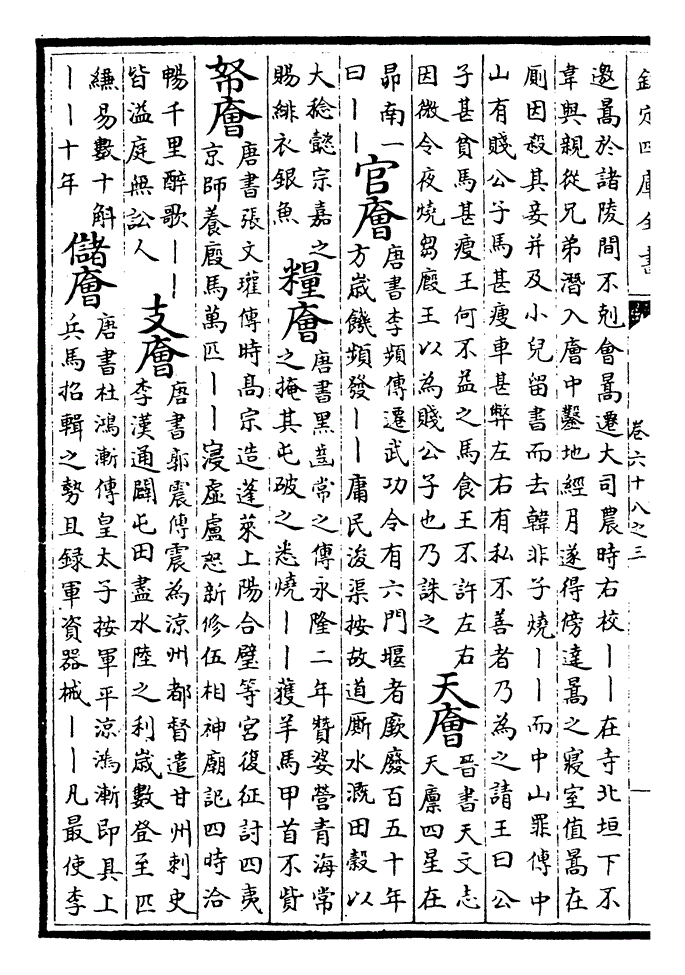 欽定四庫全書
卷六十八之三
邀暠於諸陵間不剋會暠遷大司農時右校丨丨在寺北垣下不
韋與親從兄弟潛入廥中鑿地經月遂得傍達暠之寢室值暠在
廁因殺其妾并及小兒留書而去韓非子燒丨丨而中山罪傳中
山有賤公子馬甚瘦車甚弊左右有私不善者乃為之請王曰公
子甚貧馬甚瘦王何不益之馬食王不許左右
因微令夜燒芻廄王以為賤公子也乃誅之
天廥
晉書天文志
天廩四星在
昴南一
曰丨丨
官廥
唐書李頻傳遷武功令有六門堰者厥廢百五十年
方歲饑頻發丨丨庸民浚渠按故道厮水溉田穀以
大稔懿宗嘉之
賜緋衣銀魚
糧廥
唐書黑齒常之傳永隆二年贊婆營青海常
之掩其屯破之悉燒丨丨獲羊馬甲首不貲
帑廥
唐書張文瓘傳時高宗造蓬萊上陽合璧等宮復征討四夷
京師養廄馬萬匹丨丨寖虛盧恕新修伍相神廟記四時洽
暢千里醉歌丨丨
皆溢庭無訟人
支廥
唐書郭震傳震為涼州都督遣甘州刺史
李漢通闢屯田盡水陸之利歲數登至匹
縑易數十斛
丨丨十年
儲廥
唐書杜鴻漸傳皇太子按軍平涼鴻漸即具上
兵馬招輯之勢且錄軍資器械丨丨凡最使李